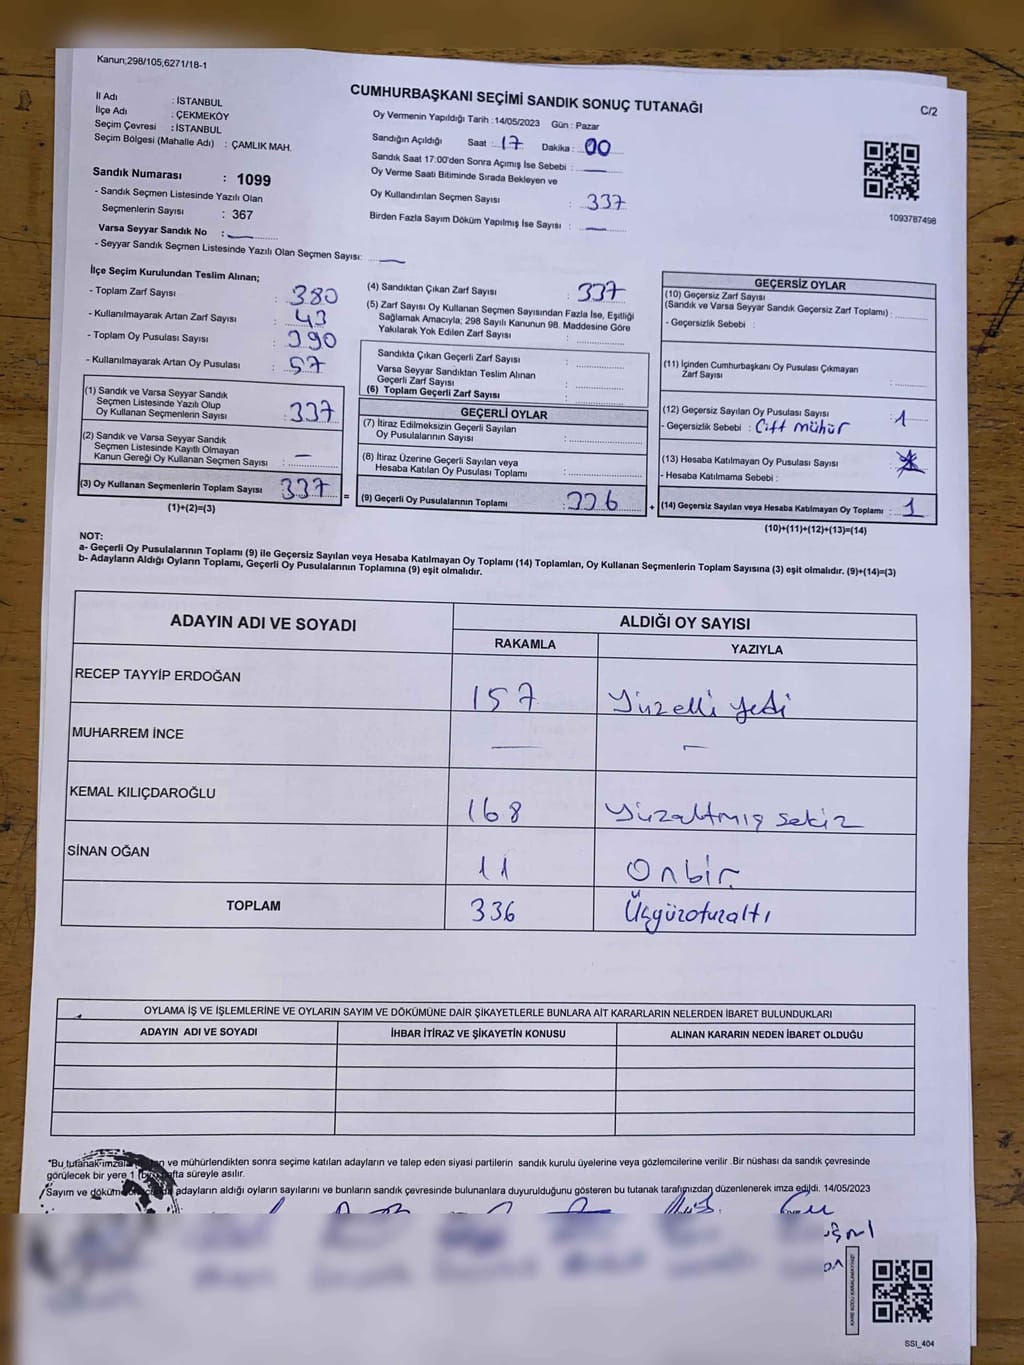 Kanun;298/105,6271/18-1
CUMHURBAŞKANI SEÇİMİ SANDIK SONUÇ TUTANAĞI
C/2
İl Adı : İSTANBUL
İlçe Adı : ÇEKMEKÖY
Seçim Çevresi : İSTANBUL
Seçim Bölgesi (Mahalle Adı) : ÇAMLIK MAH.
Sandık Numarası : 1099
- Sandık Seçmen Listesinde Yazılı Olan
Seçmenlerin Sayısı : 367
Varsa Seyyar Sandık No : —
- Seyyar Sandık Seçmen Listesinde Yazılı Olan Seçmen Sayısı: —
Oy Vermenin Yapıldığı Tarih :14/05/2023 Gün : Pazar
Sandığın Açıldığı Saat : 17 Dakika : 00
Sandık Saat 17:00'den Sonra Açımış İse Sebebi : —
Oy Verme Saati Bitiminde Sırada Bekleyen ve
Oy Kullandırılan Seçmen Sayısı : 337
Birden Fazla Sayım Döküm Yapılmış İse Sayısı : —
1093787498
İlçe Seçim Kurulundan Teslim Alınan;
- Toplam Zarf Sayısı : 380
- Kullanılmayarak Artan Zarf Sayısı : 43
- Toplam Oy Pusulası Sayısı : 390
- Kullanılmayarak Artan Oy Pusulası : 57
(1) Sandık ve Varsa Seyyar Sandık
Seçmen Listesinde Yazılı Olup
Oy Kullanan Seçmenlerin Sayısı : 337
(2) Sandık ve Varsa Seyyar Sandık
Seçmen Listesinde Kayıtlı Olmayan
Kanun Gereği Oy Kullanan Seçmen Sayısı : —
(3) Oy Kullanan Seçmenlerin Toplam Sayısı 337 =
(1)+(2)=(3)
(4) Sandıktan Çıkan Zarf Sayısı : 337
(5) Zarf Sayısı Oy Kullanan Seçmen Sayısından Fazla İse, Eşitliği
Sağlamak Amacıyla; 298 Sayılı Kanunun 98. Maddesine Göre
Yakılarak Yok Edilen Zarf Sayısı :
Sandıkta Çıkan Geçerli Zarf Sayısı :
Varsa Seyyar Sandıktan Teslim Alınan
Geçerli Zarf Sayısı :
(6) Toplam Geçerli Zarf Sayısı :
GEÇERLİ OYLAR
(7) İtiraz Edilmeksizin Geçerli Sayılan
Oy Pusulalarının Sayısı :
(8) İtiraz Üzerine Geçerli Sayılan veya
Hesaba Katılan Oy Pusulası Toplamı :
(9) Geçerli Oy Pusulalarının Toplamı : 336 +
GEÇERSİZ OYLAR
(10) Geçersiz Zarf Sayısı
(Sandık ve Varsa Seyyar Sandık Geçersiz Zarf Toplamı) :
- Geçersizlik Sebebi :
(11) İçinden Cumhurbaşkanı Oy Pusulası Çıkmayan
Zarf Sayısı :
(12) Geçersiz Sayılan Oy Pusulası Sayısı : 1
- Geçersizlik Sebebi : Çift mühür
(13) Hesaba Katılmayan Oy Pusulası Sayısı :
- Hesaba Katılmama Sebebi :
(14) Geçersiz Sayılan veya Hesaba Katılmayan Oy Toplamı : 1
(10)+(11)+(12)+(13)=(14)
NOT:
a- Geçerli Oy Pusulalarının Toplamı (9) ile Geçersiz Sayılan veya Hesaba Katılmayan Oy Toplamı (14) Toplamları, Oy Kullanan Seçmenlerin Toplam Sayısına (3) eşit olmalıdır. (9)+(14)=(3)
b- Adayların Aldığı Oyların Toplamı, Geçerli Oy Pusulalarının Toplamına (9) eşit olmalıdır.
ADAYIN ADI VE SOYADI ALDIĞI OY SAYISI
RAKAMLA YAZIYLA
RECEP TAYYİP ERDOĞAN 157 Yüzelli yedi
MUHARREM İNCE — —
KEMAL KILIÇDAROĞLU 168 Yüzaltmış sekiz
SİNAN OĞAN 11 Onbir.
TOPLAM 336 Üçyüzotuzaltı
OYLAMA İŞ VE İŞLEMLERİNE VE OYLARIN SAYIM VE DÖKÜMÜNE DAİR ŞİKAYETLERLE BUNLARA AİT KARARLARIN NELERDEN İBARET BULUNDUKLARI
ADAYIN ADI VE SOYADI İHBAR İTİRAZ VE ŞİKAYETİN KONUSU ALINAN KARARIN NEDEN İBARET OLDUĞU
*Bu tutanak ve mühürlendikten sonra seçime katılan adayların ve talep eden siyasi partilerin sandık kurulu üyelerine veya gözlemcilerine verilir .Bir nüshası da sandık çevresinde
görülecek bir yere 1 hafta süreyle asılır.
Sayım ve döküm adayların aldığı oyların sayılarını ve bunların sandık çevresinde bulunanlara duyurulduğunu gösteren bu tutanak tarafımızdan düzenlenerek imza edildi. 14/05/2023
KARE KODU KARALAMAYINIZ!
SSİ_404